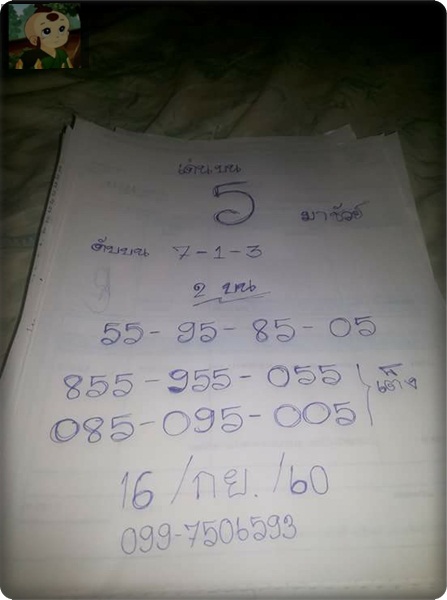 เด่นบน
5 มาชัวร์
ดับบน 7-1-3
2 บน
55-95-85-05
855-955-055
085-095-005 เต็ง
16/กย./60
099-7506593